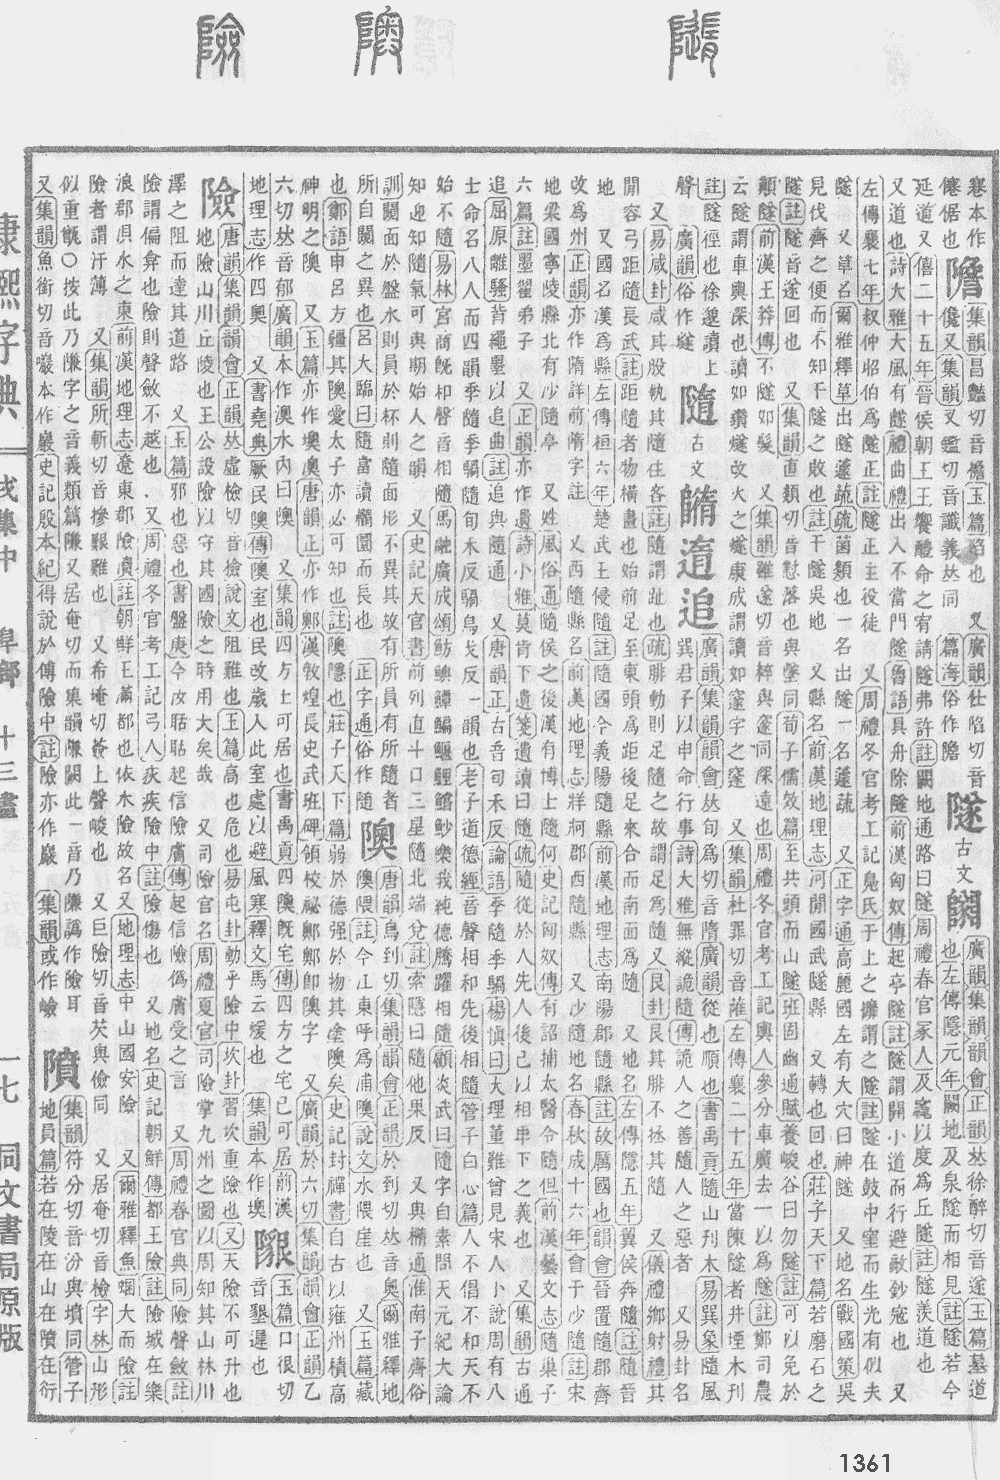 隨 隩 險
集韻昌豔切音襜玉篇㙊也 又廣韻仕陷切音
儳又集韻叉鑑切音讖義𠀤同 篇海俗作
隧 古文
廣韻集韻韻會正韻𠀤徐醉切音遂玉篇墓道
也左傳隱元年闕地及泉隧而相見註隧若今
延道又僖二十五年晉侯朝王王饗醴命之宥請隧弗許註闕地通路曰隧周禮春官冢人及竁以度爲丘隧註隧羨道也
又道也詩大雅大風有隧禮曲禮出入不當門隧魯語具舟除隧前漢匈奴傳起亭隧註隧謂開小道而行避敵鈔寇也 又
左傳襄七年叔仲昭伯爲隧正註隧正主役徒 又周禮冬官考工記鳧氏于上之攠謂之隧註隧在鼓中窐而生光有似夫
隧 又草名爾雅釋草出隧蘧蔬疏菌類也一名出隧一名蘧蔬 又正字通高麗國左有大穴曰神隧 又地名戰國策吳
見伐齊之便而不知干隧之敗也註干隧吳地 又縣名前漢地理志河閒國武隧縣 又轉也回也莊子天下篇若磨石之
隧註隧音遂回也 又集韻直類切音懟落也與墜同荀子儒效篇至共頭而山隧班固幽通賦養峻谷曰勿隧註可以免於
顚隧前漢王莽傳不隧如髮 又集韻雖遂切音粹與邃同深遠也周禮冬官考工記輿人參分車廣去一以爲隧註鄭司農
云隧謂車輿深也讀如鑽燧改火之燧康成謂讀如邃宇之邃 又集韻杜罪切音䧡左傳襄二十五年當陳隧者井堙木刊
註隧徑也徐邈讀上
聲 廣韻俗作㸂
隨 古文 追
廣韻集韻韻會𠀤旬爲切音隋廣韻從也順也書禹貢隨山刊木易巽象隨風
巽君子以申命行事詩大雅無縱詭隨傳詭人之善隨人之惡者 又易卦名
又易咸卦咸其股執其隨往吝註隨謂趾也疏腓動則足隨之故謂足爲隨又艮卦艮其腓不拯其隨 又儀禮鄉射禮其
開容弓距隨長武註距隨者物橫畫也始前足至東頭爲距後足來合而南面爲隨 又地名左傳隱五年翼侯奔隨註隨晉
地 又國名漢爲縣左傳桓六年楚武王侵隨註隨國今義陽隨縣前漢地理志南陽郡隨縣註故厲國也韻會晉置隨郡齊
改爲州正韻亦作隋詳前隋字註 又西隨縣名前漢地理志牂牁郡西隨縣 又少隨地名春秋成十六年會于少隨註宋
地梁國寧陵縣北有沙隨亭 又姓風俗通隨侯之後漢有博士隨何史記匈奴傳有詔捕太醫令隨但前漢藝文志隨巢子
六篇註墨翟弟子 又正韻亦作遺詩小雅莫肯下遺箋遺讀曰隨疏隨從於人先人後己以相卑下之義也 又集韻古通
追屈原離騷背繩墨以追曲註追與隨通 又唐韻正古音旬禾反論語季隨季騧楊愼曰大理董難曾見宋人小說周有八
士命名八人而四韻季隨季騧隨旬禾反騧烏戈反一韻也老子道德經音聲相和先後相隨管子白心篇人不倡不和天不
始不隨易林宮商旣和聲音相隨馬融廣成頌魴鱮鱏鯿鰋鯉鱨魦樂我純德騰躍相隨顧炎武曰隨字自素問天元紀大論
知迎知隨氣可與期始入之韻 又史記天官書前列直斗口三星隨北端兌註索隱曰隨他果反 又與橢通淮南子齊俗
訓闚面於盤水則員於杯則隨面形不異其故有所員有所隨者
所自闚之異也呂大臨曰隨當讀橢圜而長也 正字通俗作随
隩
唐韻烏到切集韻韻會正韻於到切𠀤音奧爾雅釋地
隩隈註今江東呼爲浦隩說文水隈崖也 又玉篇藏
也鄭語申呂方疆其隩愛太子亦必可知也註隩隱也莊子天下篇弱於德强於物其塗隩矣史記封禪書自古以雍州積高
神明之隩 又玉篇亦作墺㘬唐韻正亦作鄭漢敦煌長史武班碑領校祕鄭鄭卽隩字 又廣韻於六切集韻韻會正韻乙
六切𠀤音郁廣韻本作澳水內曰隩 又集韻四方土可居也書禹貢四隩旣宅傳四方之宅已可居前漢
地理志作四奧 又書堯典厥民隩傳隩室也民改歲入此室處以避風寒釋文馬云煖也 集韻本作墺
玉篇口很切
音墾遲也
險
唐韻集韻韻會正韻𠀤虛檢切音獫說文阻難也玉篇高也危也易屯卦動乎險中坎卦習坎重險也又天險不可升也
地險山川丘陵也王公設險以守其國險之時用大矣哉 又司險官名周禮夏官司險掌九州之圖以周知其山林川
澤之阻而達其道路 又玉篇邪也惡也書盤庚今汝聒聒起信險膚傳起信險僞膚受之言 又周禮春官典同險聲斂註
險謂偏弇也險則聲斂不越也 又周禮冬官考工記弓人疢疾險中註險傷也 又地名史記朝鮮傳都王險註險城在樂
浪郡浿水之東前漢地理志遼東郡險瀆註朝鮮王滿都也依水險故名又地理志中山國安險 又爾雅釋魚蜠大而險註
險者謂汙薄 又集韻所斬切音摻艱難也 又希埯切杴上聲峻也 又巨險切音芡與儉同 又居奄切音檢字林山形
似重甑〇按此乃隒字之音義類篇隒又居奄切而集韻隒闕此一音乃隒譌作險耳
又集韻魚銜切音巖本作巖史記殷本紀得說於傅險中註險亦作巖 集韻或作嶮
隫
集韻符分切音汾與墳同管子
地員篇若在陵在山在隫在衍
康熙字典 戌集中 阜部 十三畫 一七 同文書局原版
1361